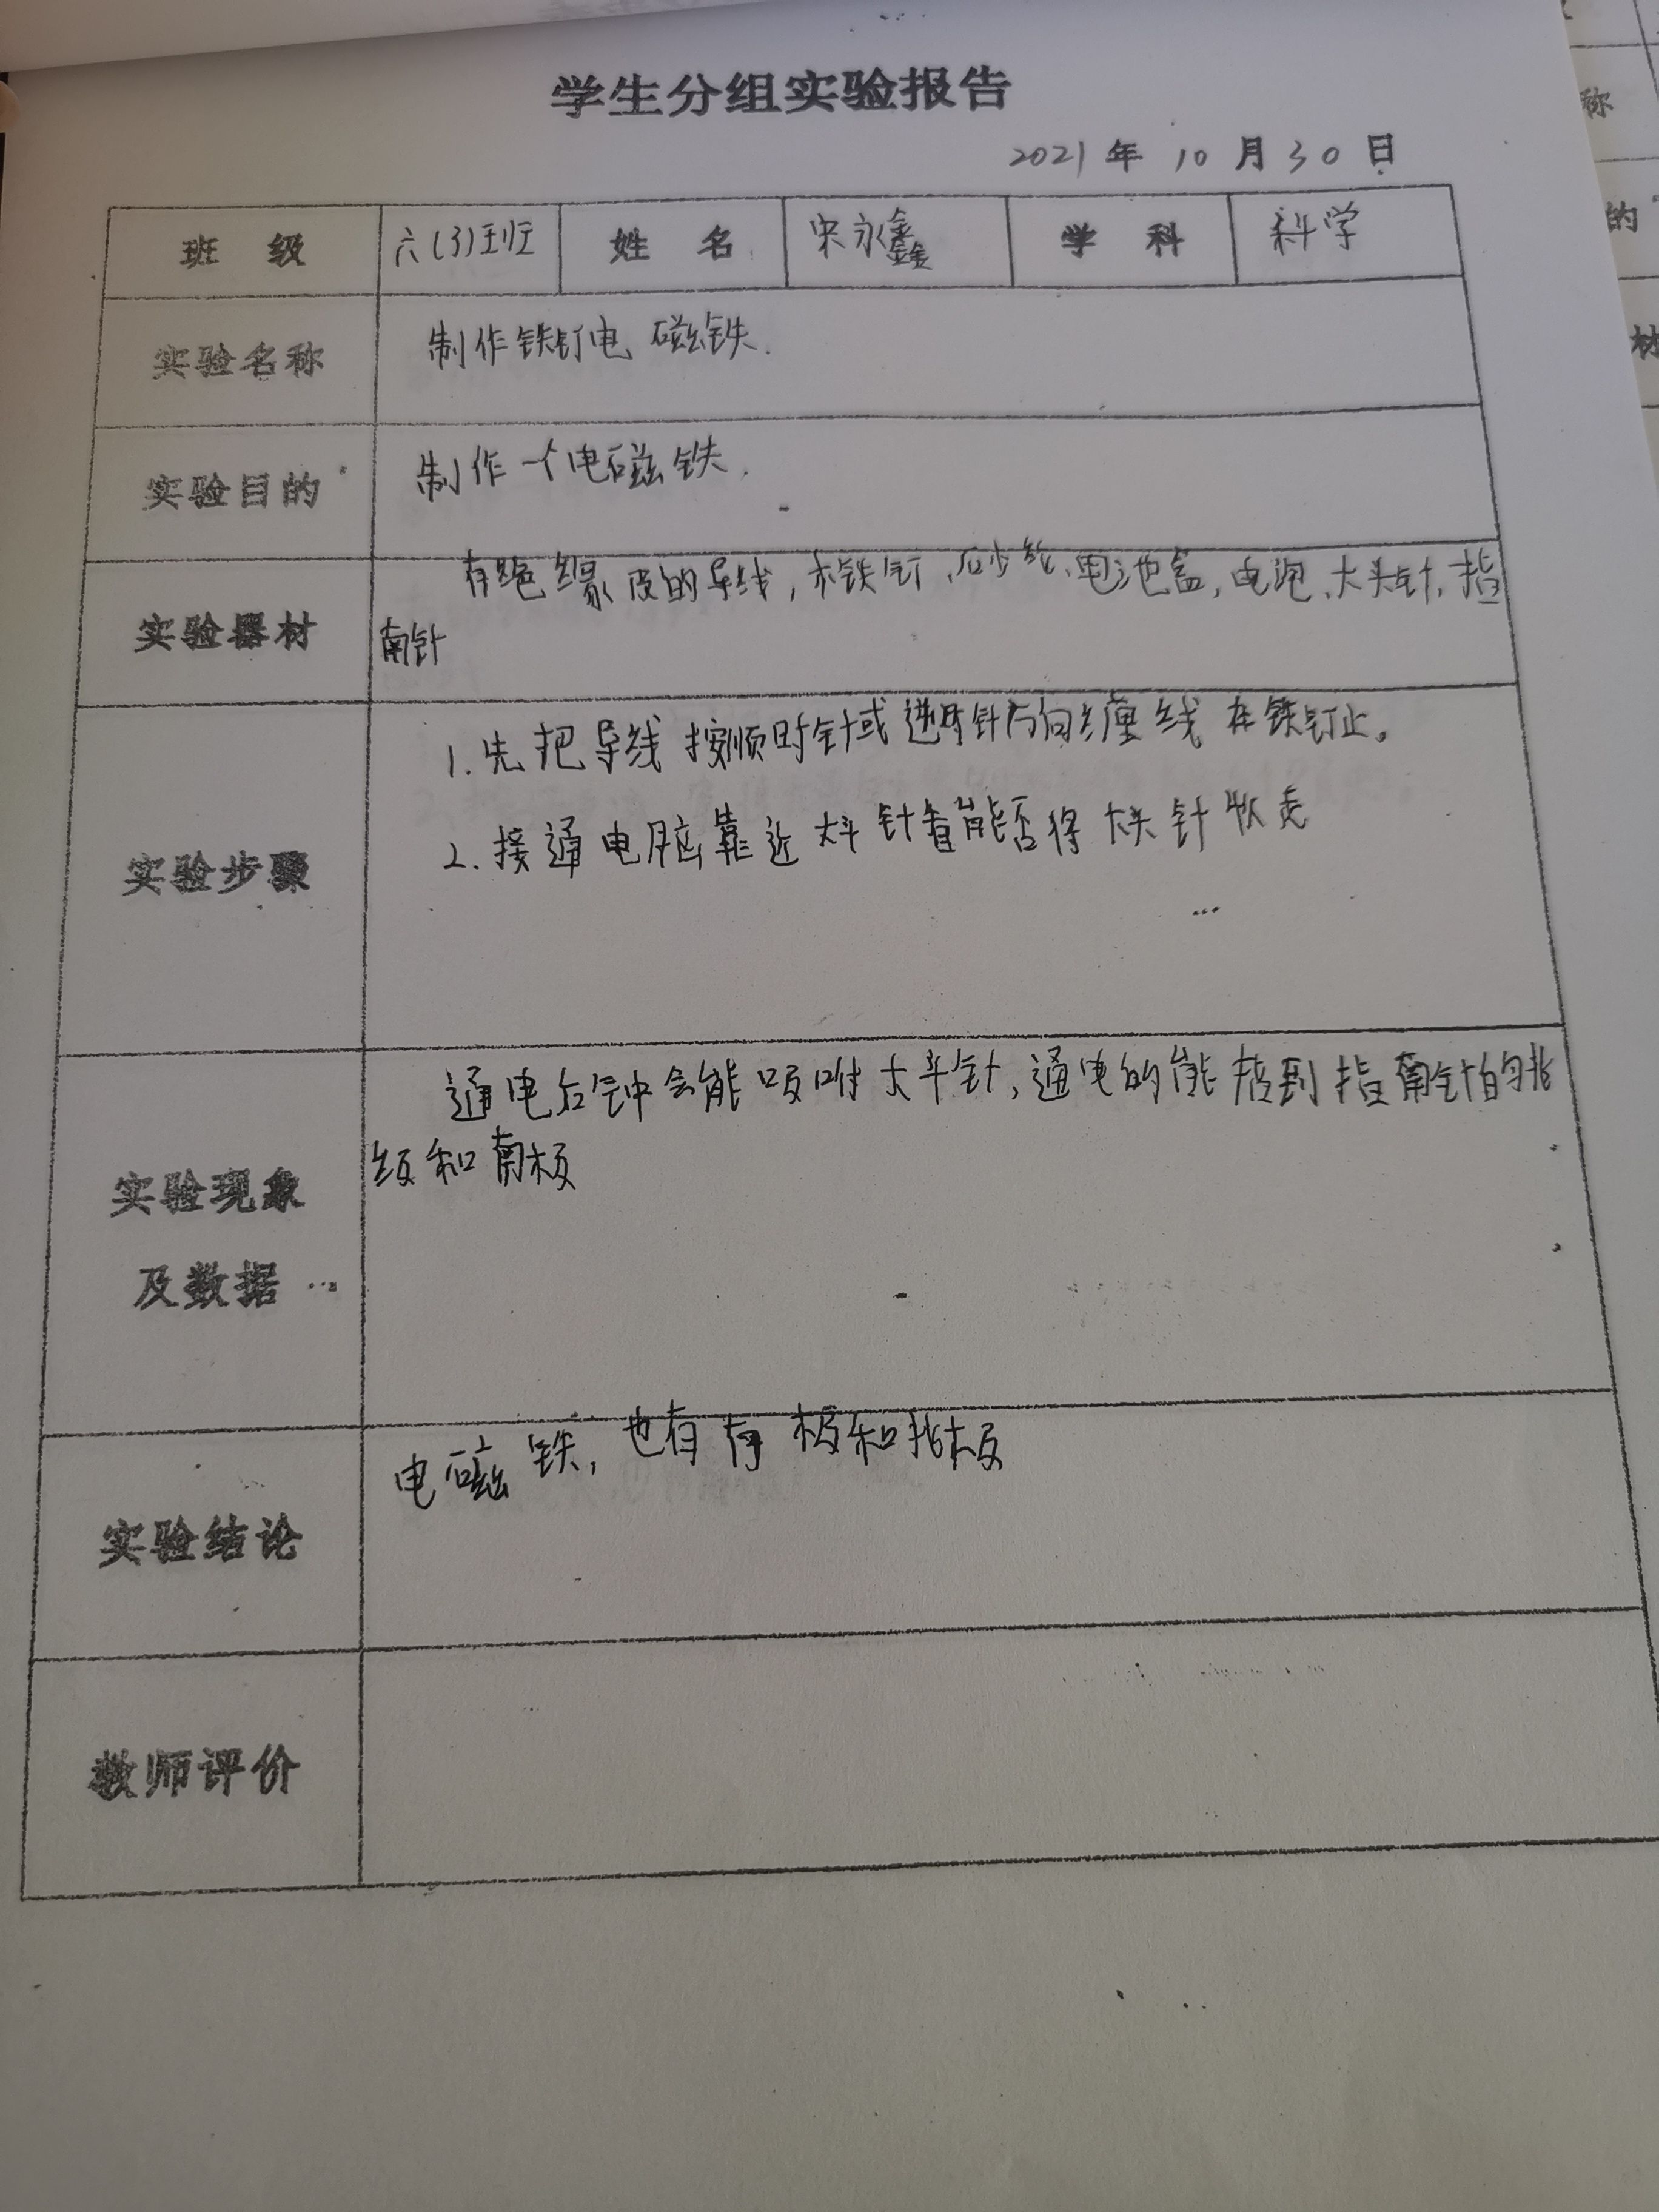 学生分组实验报告
2021年10月30日
班 级 六(3)班 姓 名 宋永鑫 学 科 科学
实验名称 制作铁钉电磁铁.
实验目的 制作一个电磁铁.
实验器材 有绝缘皮的导线,大铁钉、砂纸、电池盒,电池、大头针,指
南针
实验步骤
1.先把导线按顺时针或逆时针方向缠线在铁钉上。
2.接通电脑靠近大头针看能否将大头针吸走
实验现象
及数据
通电后 会能吸附大头针,通电的能 到指南针的北
级和南极
实验结论 电磁铁,也有南极和北极
教师评价
称
的
材